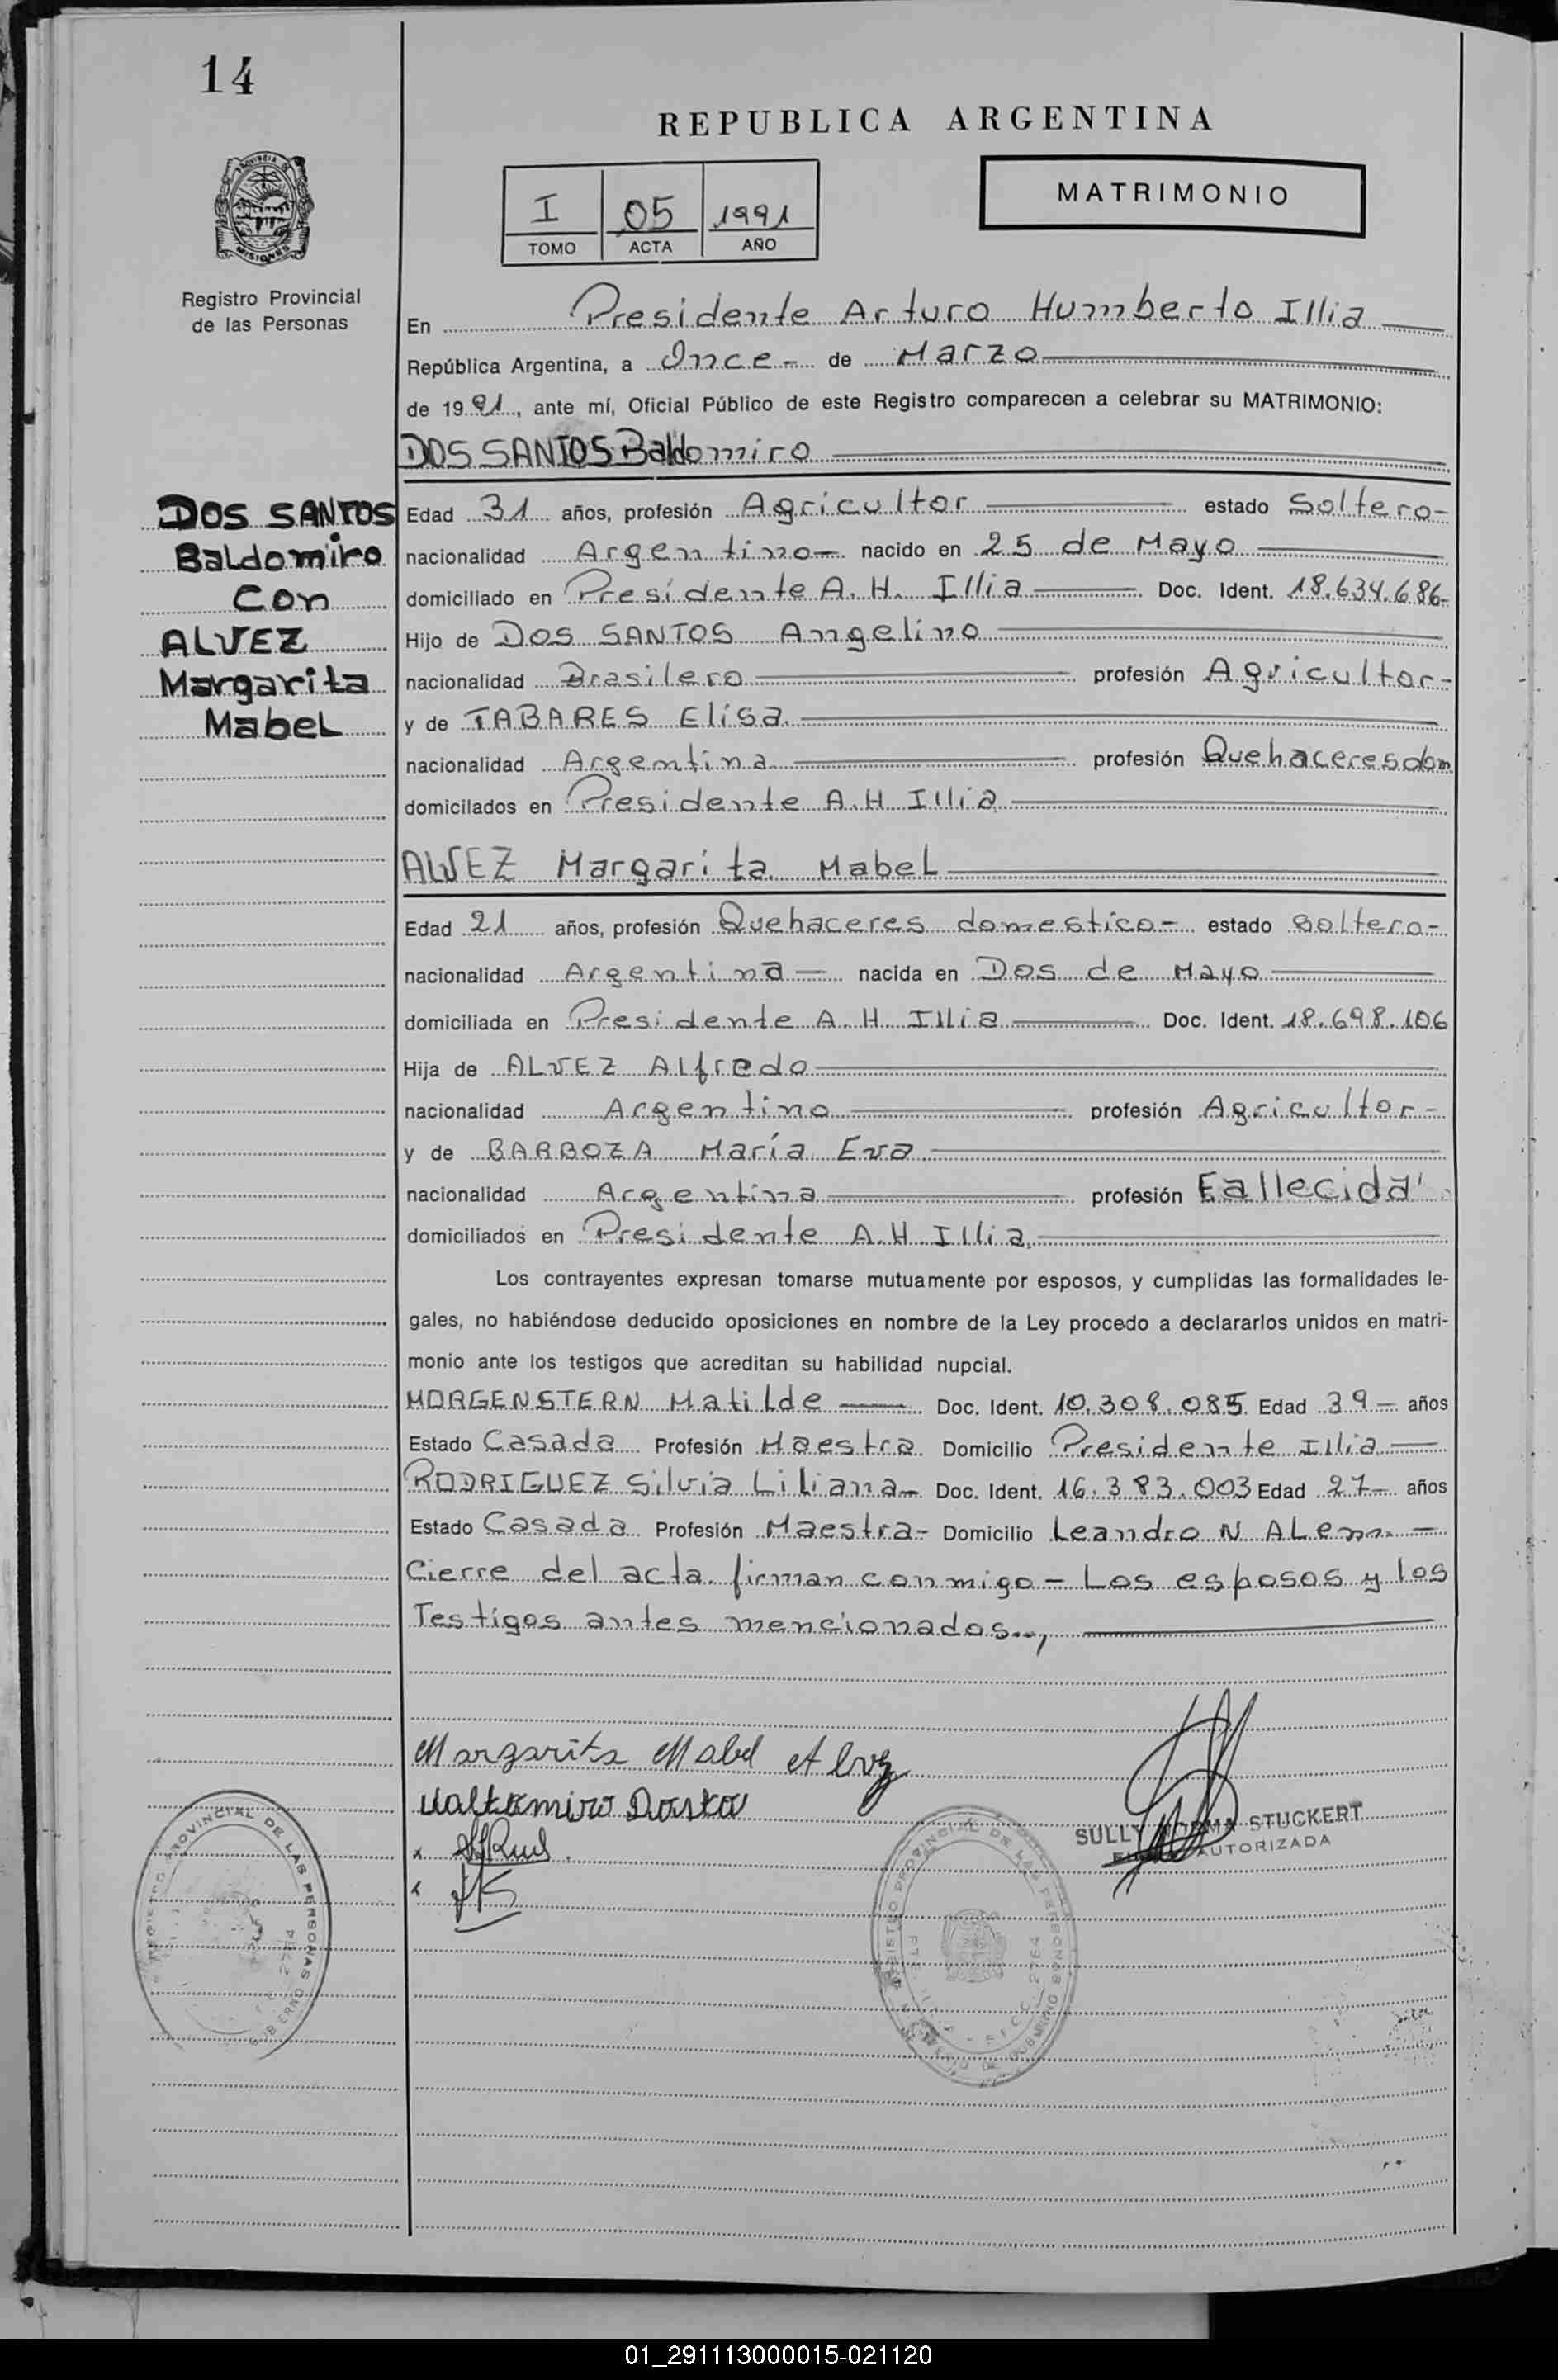 14
REPUBLICA ARGENTINA
I 05 1991
TOMO ACTA AÑO
MATRIMONIO
PROVINCIA DE
MISIONES
Registro Provincial
de las Personas
En Presidente Arturo Humberto Illia
República Argentina, a Once - de Marzo
de 1991, ante mí, Oficial Público de este Registro comparecen a celebrar su MATRIMONIO:
DOS SANTOS Baldomiro
DOS SANTOS
Baldomiro
Con
ALVEZ
Margarita
Mabel
Edad 31 años, profesión Agricultor estado Soltero-
nacionalidad Argentino- nacido en 25 de Mayo
domiciliado en Presidente A. H. Illia Doc. Ident. 18.634.686-
Hijo de DOS SANTOS Angelino
nacionalidad Brasilero profesión Agricultor-
y de TABARES Elisa.
nacionalidad Argentina profesión Quehaceres dom
domicilados en Presidente A.H Illia
ALVEZ Margarita Mabel
Edad 21 años, profesión Quehaceres domestico- estado soltero-
nacionalidad Argentina- nacida en Dos de Mayo
domiciliada en Presidente A. H. Illia Doc. Ident. 18.698.106
Hija de ALVEZ Alfredo
nacionalidad Argentino profesión Agricultor-
y de BARBOZA María Eva
nacionalidad Argentina profesión Fallecida
domiciliados en Presidente A.H. Illia.
Los contrayentes expresan tomarse mutuamente por esposos, y cumplidas las formalidades le-
gales, no habiéndose deducido oposiciones en nombre de la Ley procedo a declararlos unidos en matri-
monio ante los testigos que acreditan su habilidad nupcial.
MORGENSTERN Matilde Doc. Ident. 10.308.085 Edad 39- años
Estado Casada Profesión Maestra Domicilio Presidente Illia-
RODRIGUEZ Silvia Liliana- Doc. Ident. 16.383.003 Edad 27- años
Estado Casada Profesión Maestra- Domicilio Leandro N ALem.-
Cierre del acta firman conmigo- Los esposos y los
Testigos antes mencionados..,
Margarita Mabel Alvez
SULLY NORMA STUCKERT
AUTORIZADA
REGISTRO PROVINCIAL DE LAS PERSONAS
2764
GOBIERNO
REGISTRO PROVINCIAL DE LAS PERSONAS
2764
MINISTERIO DE GOBIERNO
01_291113000015-021120